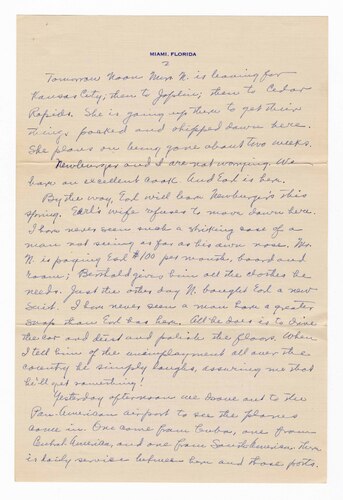 MIAMI, FLORIDA
2
Tomorrow Noon Mrs. N. is leaving for
Kansas City, then to Joplin; then to Cedar
Rapids. She is going up there to get their
things packed and shipped down here.
She plans on being gone about two weeks.
Newburger and I are not worrying. We
have an excellent cook. And Earl is here.
By the way, Earl will leave Newburger's this
spring. Earl's wife refuses to move down here.
I have never seen such a striking case of a
man not seeing as far as his own nose. Mr.
N. is paying Earl $100 per month, board and
room; Berthold gives him all the clothes he
needs. Just the other day N. bought Earl a new
suit. I have never seen a man have a greater
snap than Earl has here. All he does is to drive
the car and dust and polish the floors. When
I tell him of the unemployment all over the
country he simply laughs, assuring me that
he'll get something!
Yesterday afternoon we drove out to the
Pan American airport to see the planes
come in. One came from Cuba, one from
Central America, and one from South America. There
is daily service between here and those ports.